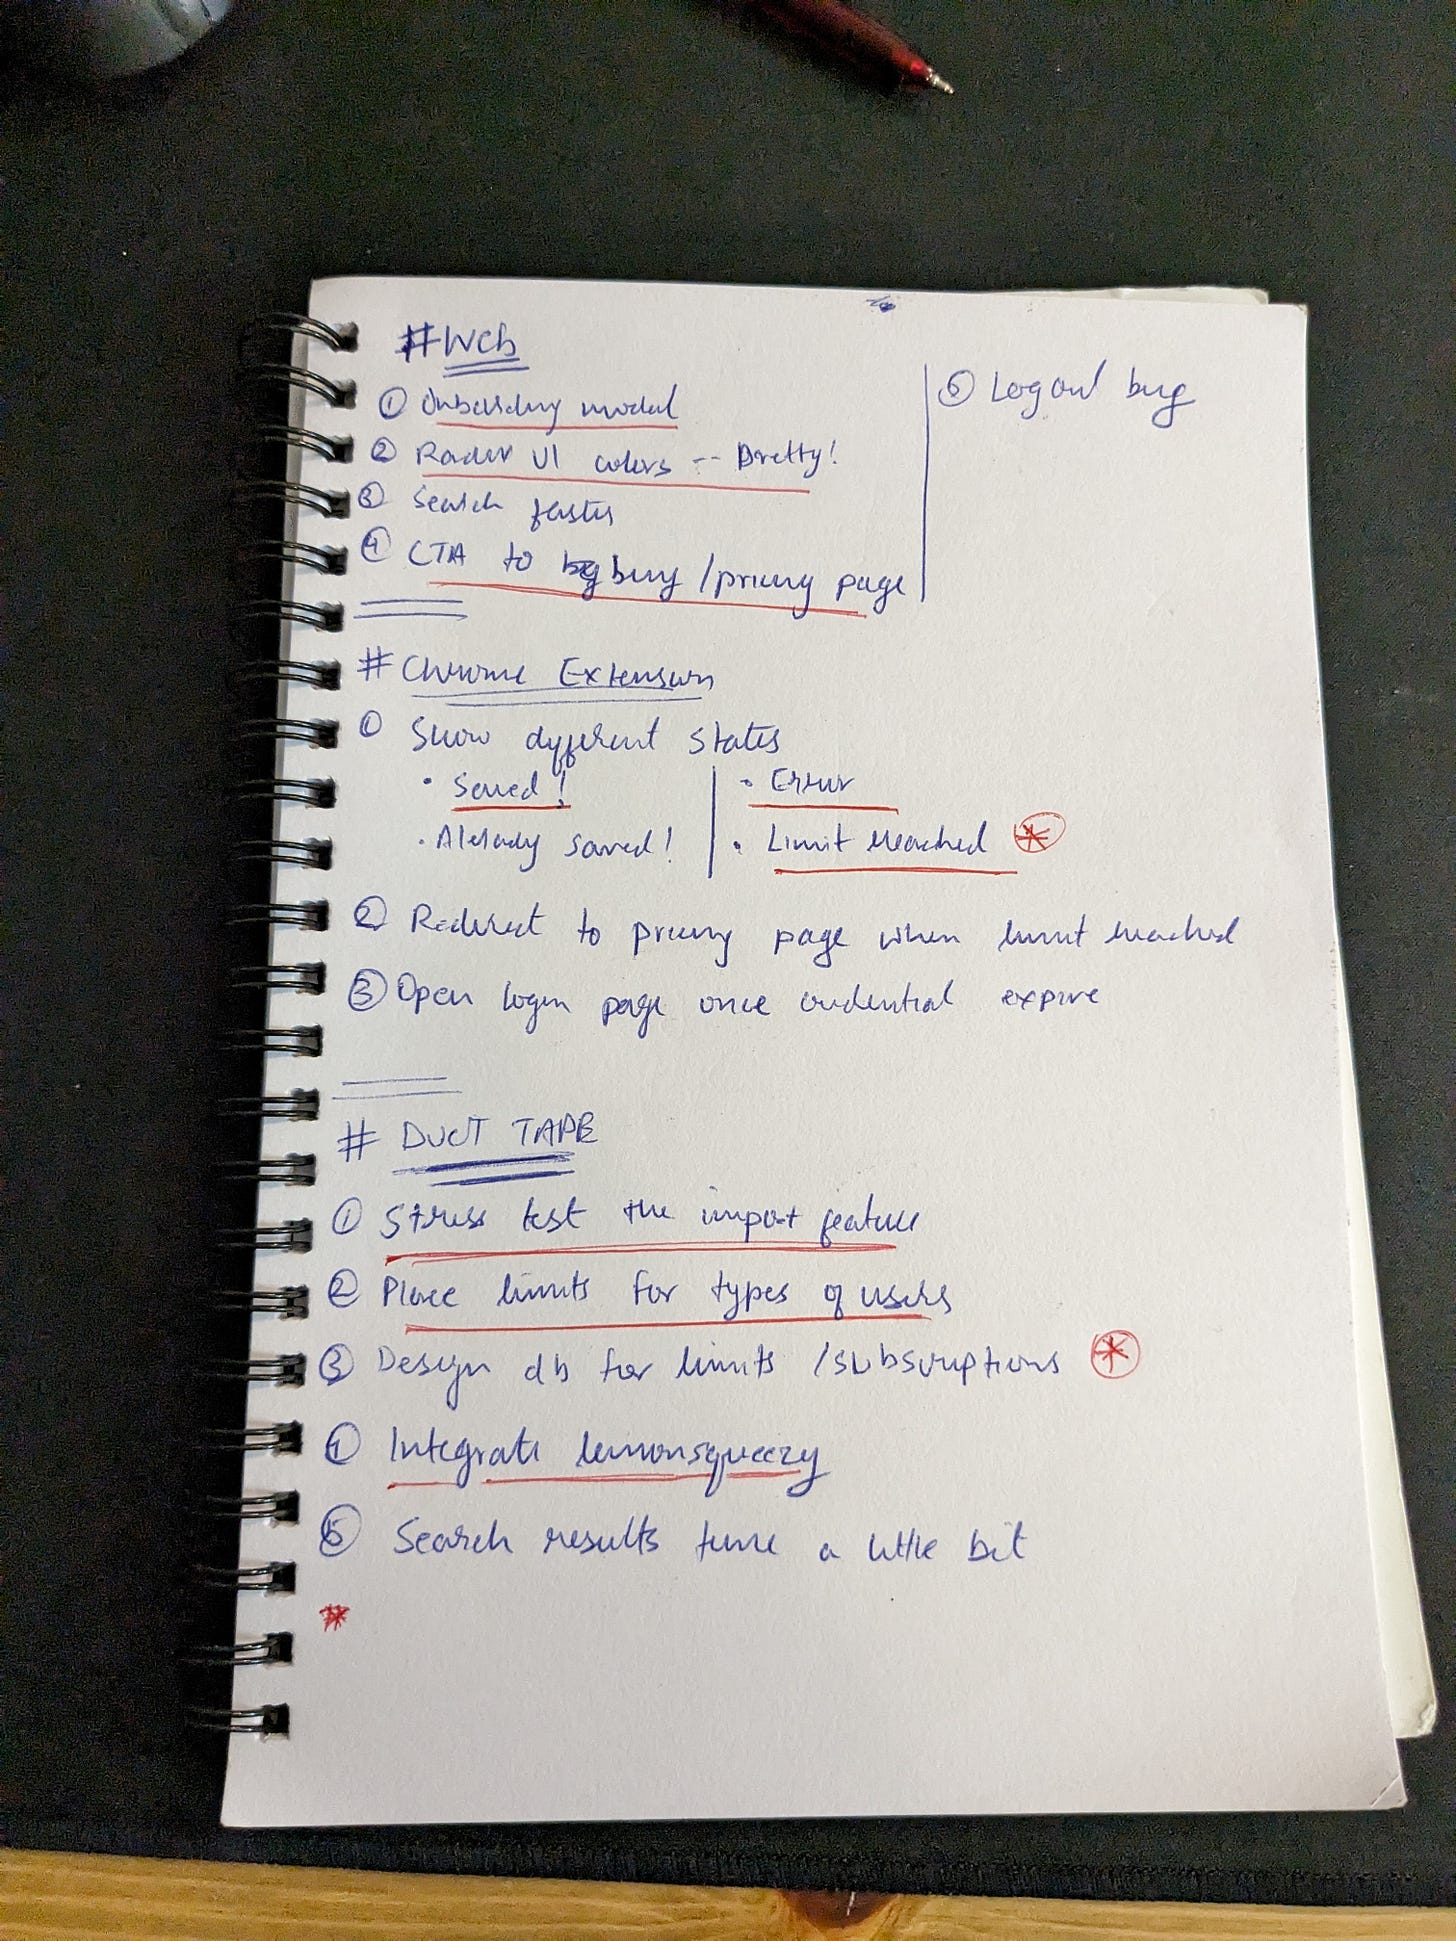 # Web
① Onboarding modal
② Radix UI colors -- Pretty!
③ Search faster
④ CTA to buy / pricing page
⑤ Logout bug
# Chrome Extension
① Show different states
• Saved!
• Already saved!
• Error
• Limit reached *
② Redirect to pricing page when limit reached
③ Open login page once credential expire
# DUCT TAPE
① Stress test the import feature
② Place limits for types of users
③ Design db for limits / subscriptions *
④ Integrate lemonsqueezy
⑤ Search results tune a little bit
*